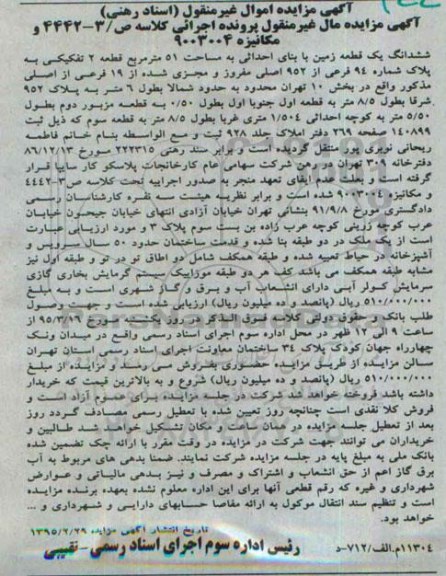 آگهی مزایده اموال غیرمنقول (اسناد رهنی)
آگهی مزایده مال غیرمنقول پرونده اجرائی کلاسه ص/۳-۴۴۴۲ و
مکانیزه ۹۰۰۳۰۰۴
ششدانگ یک قطعه زمین با بنای احداثی به مساحت ۵۱ مترمربع قطعه ۲ تفکیکی به
پلاک شماره ۹۴ فرعی از ۹۵۲ اصلی مفروز و مجزی شده از ۱۹ فرعی از اصلی
مذکور واقع در بخش ۱۰ تهران محدود به حدود شمالا بطول ۶ متر به پلاک ۹۵۲
شرقا بطول ۸/۵ متر به قطعه اول جنوبا اول بطول ۰/۵۰ به قطعه مزبور دوم بطول
۵/۵۰ متر به کوچه احداثی ۱/۵۰۴ متری غربا بطول ۸/۵ متر به قطعه سوم که ذیل ثبت
۱۴۰۸۹۹ صفحه ۲۶۹ دفتر املاک جلد ۹۲۸ ثبت و مع الواسطه بنام خانم فاطمه
ریحانی نویری پور منتقل گردیده است و برابر سند رهنی ۲۲۲۳۱۵ مورخ ۸۶/۱۲/۱۳
دفترخانه ۳۰۹ تهران در رهن شرکت سهامی عام کارخانجات پلاسکو کار سایا قرار
گرفته است و بعلت عدم ایفای تعهد منجر به صدور اجراییه تحت کلاسه ص۳-۴۴۴۲
و مکانیزه ۹۰۰۳۰۰۴ شده است و برابر نظریه هیئت سه نفره کارشناسان رسمی
دادگستری مورخ ۹۱/۹/۸ بنشانی تهران خیابان آزادی انتهای خیابان جیحون خیابان
عرب کوچه زرینی کوچه عرب زاده بن بست سوم پلاک ۳ و مورد ارزیابی عبارت
است از یک ملک در دو طبقه بنا شده و قدمت ساختمان حدود ۵۰ سال سرویس و
آشپزخانه در حیاط تعبیه شده و طبقه همکف شامل دو اطاق تو در تو و طبقه اول نیز
مشابه طبقه همکف می باشد کف هر دو طبقه موزاییک سیستم گرمایش بخاری گازی
سرمایش کولر آبی دارای انشعاب آب و برق و گاز شهری است و به مبلغ
۵۱۰/۰۰۰/۰۰۰ ریال (پانصد و ده میلیون ریال) ارزیابی شده است و جهت وصول
طلب بانک و حقوق دولتی کلاسه فوق الذکر در روز یکشنبه مورخ ۹۵/۳/۱۶ از
ساعت ۹ الی ۱۲ ظهر در محل اداره سوم اجرای اسناد رسمی واقع در میدان ونک
چهارراه جهان کودک پلاک ۳۴ ساختمان معاونت اجرای اسناد رسمی استان تهران
سالن مزایده از طریق مزایده حضوری بفروش می رسد و مزایده از مبلغ
۵۱۰/۰۰۰/۰۰۰ ریال (پانصد و ده میلیون ریال) شروع و به بالاترین قیمت که خریدار
داشته باشد فروخته خواهد شد شرکت در جلسه مزایده برای عموم آزاد است و
فروش کلا نقدی است چنانچه روز تعیین شده با تعطیل رسمی مصادف گردد روز
بعد از تعطیل جلسه مزایده در همان ساعت و مکان تشکیل خواهد شد طالبین و
خریداران می توانند جهت شرکت در مزایده در وقت مقرر با ارائه چک تضمین شده
بانک ملی به مبلغ پایه در جلسه مزایده شرکت نمایند. ضمنا بدهی های مربوط به آب
برق گاز اعم از حق انشعاب و اشتراک و مصرف و نیز بدهی مالیاتی و عوارض
شهرداری و غیره که رقم قطعی آنها برای این اداره معلوم نشده بعهده برنده مزایده
است و تنظیم سند انتقال موکول به ارائه مفاصا حسابهای دارایی و شهرداری و ...
خواهد بود.
تاریخ انتشار آگهی مزایده ۱۳۹۵/۲/۲۹
۱۱۳۰۴م.الف/۷۱۲-د رئیس اداره سوم اجرای اسناد رسمی - نقیبی